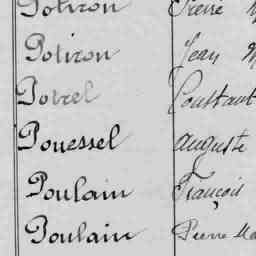 Potiron Pierre
Potiron Jean
Potrel Constant
Pouessel Auguste
Poulain François
Poulain Pierre Ma